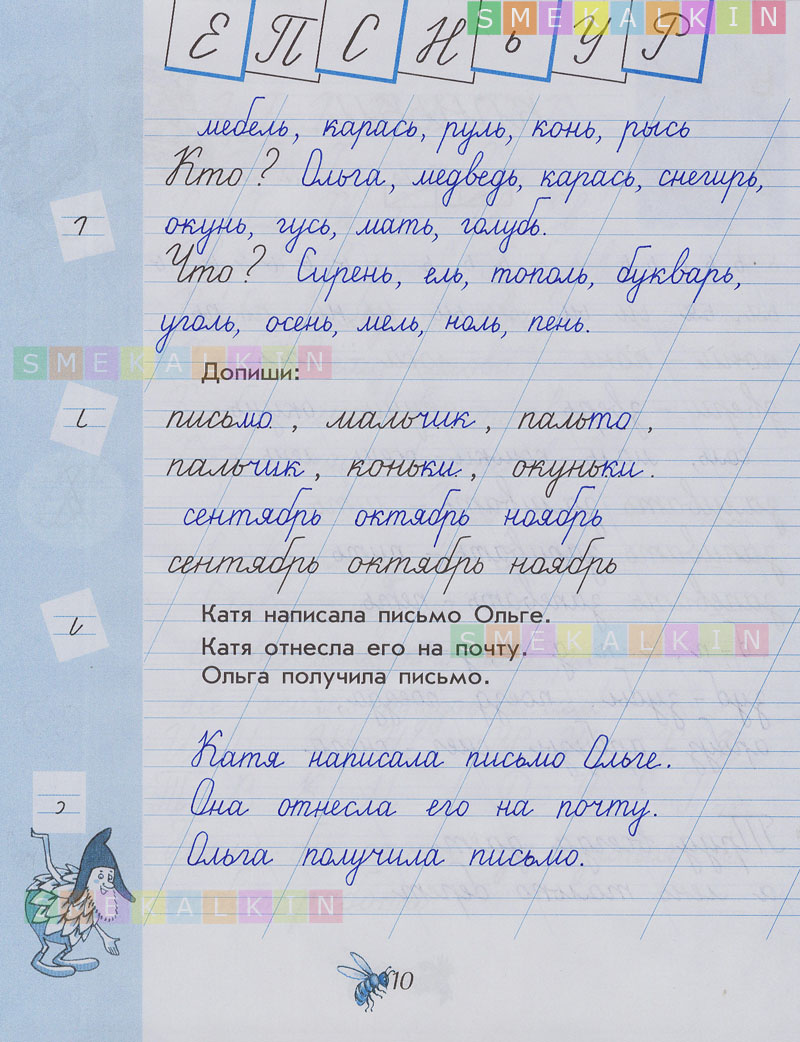 Е П С Н ь У Р
SMEKALKIN
мебель, карась, руль, конь, рысь
Кто? Ольга, медведь, карась, снегирь,
окунь, гусь, мать, голубь.
Что? Сирень, ель, тополь, букварь,
уголь, осень, мель, ноль, пень.
SMEKALKIN
Допиши:
письмо, мальчик, пальто,
пальчик, коньки, окуньки.
сентябрь октябрь ноябрь
сентябрь октябрь ноябрь
Катя написала письмо Ольге.
SMEKALKIN
Катя отнесла его на почту.
Ольга получила письмо.
Катя написала письмо Ольге.
Она отнесла его на почту.
Ольга получила письмо.
SMEKALKIN
10